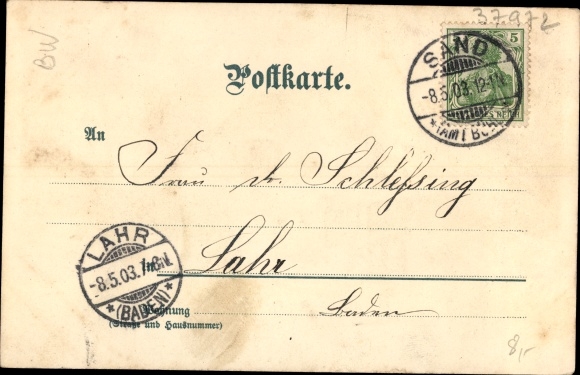 37972
BW
5
SAND
-8.5.03.12-1N.
*(AMT BÜHL)*
REICH
Postkarte.
An
Frau Dr. Schlessing
LAHR
-8.5.03.
*(BADEN)*
in Lahr
Baden
Wohnung
(Straße und Hausnummer)
8,-